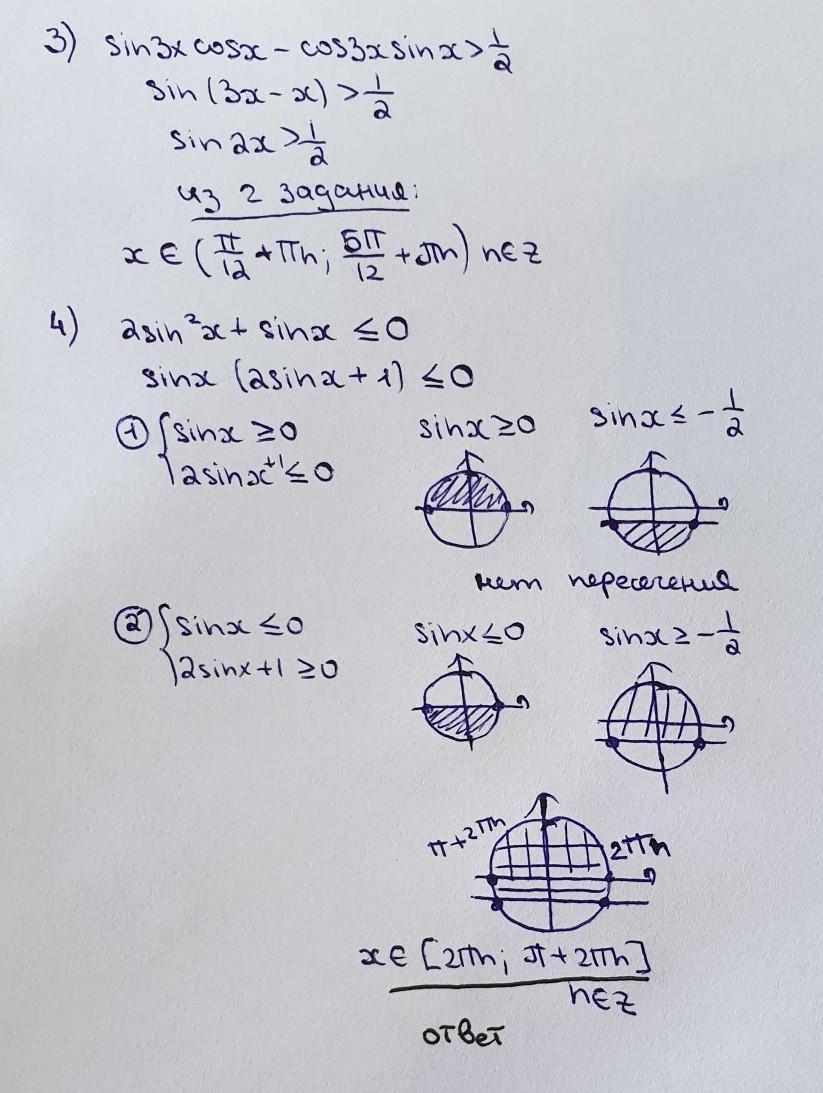 3) sin3x cosx - cos3x sinx > 1/2
sin (3x - x) > 1/2
sin 2x > 1/2
из 2 задания:
x ∈ (π/12 + πn; 5π/12 + πn) n∈Z
4) 2sin²x + sinx ≤ 0
sinx (2sinx + 1) ≤ 0
① { sinx ≥ 0
2sinx+1 ≤ 0
sinx ≥ 0
sinx ≤ - 1/2
нет пересечения
② { sinx ≤ 0
2sinx+1 ≥ 0
sinx ≤ 0
sinx ≥ - 1/2
π+2πn
2πn
x ∈ [2πn; π+2πn]
n∈Z
ответ